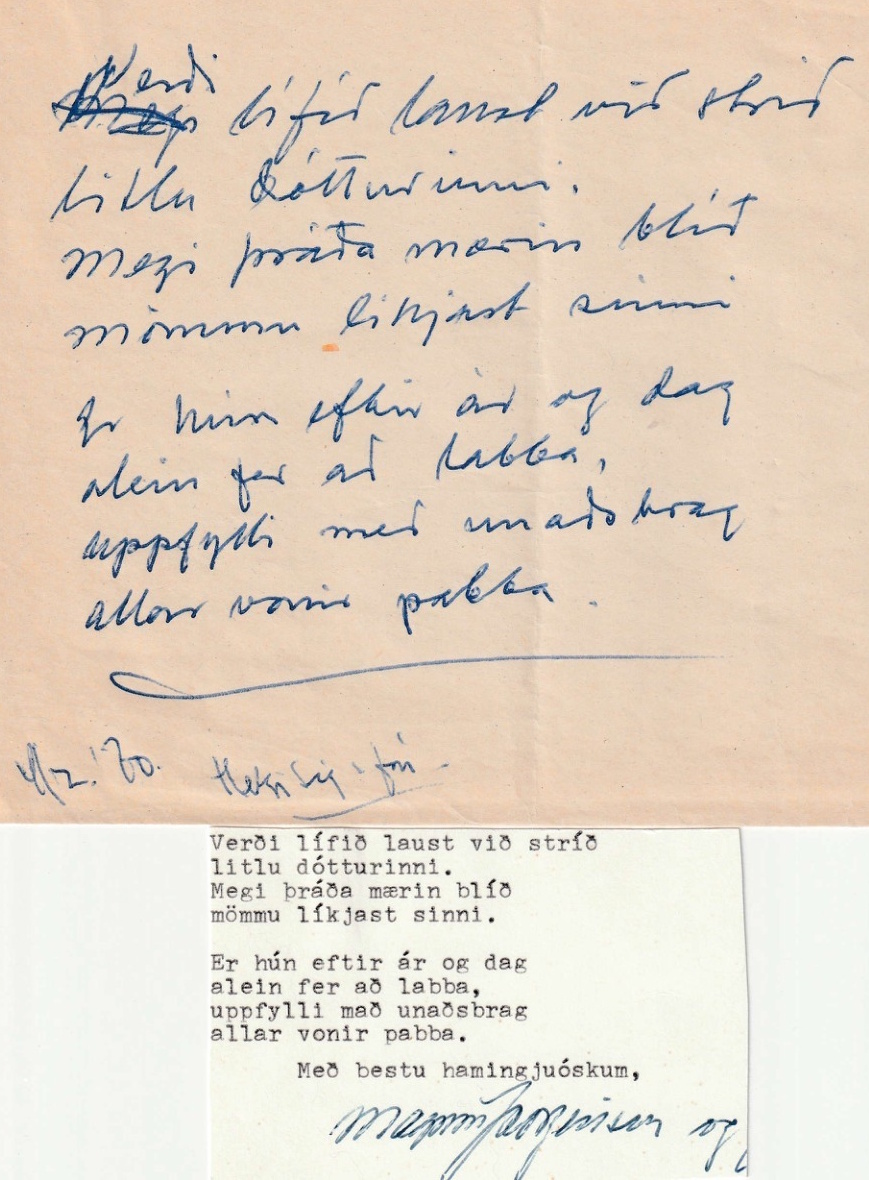 Verði lífið laust við stríð
litlu dótturinni.
Megi þráða mærin blíð
mömmu líkjast sinni
Er hún eftir ár og dag
alein fer að labba,
uppfylli með unaðsbrag
allar vonir pabba.
4/2 '70.
Verði lífið laust við stríð
litlu dótturinni.
Megi þráða mærin blíð
mömmu líkjast sinni.
Er hún eftir ár og dag
alein fer að labba,
uppfylli mað unaðsbrag
allar vonir pabba.
Með bestu hamingjuóskum,
og